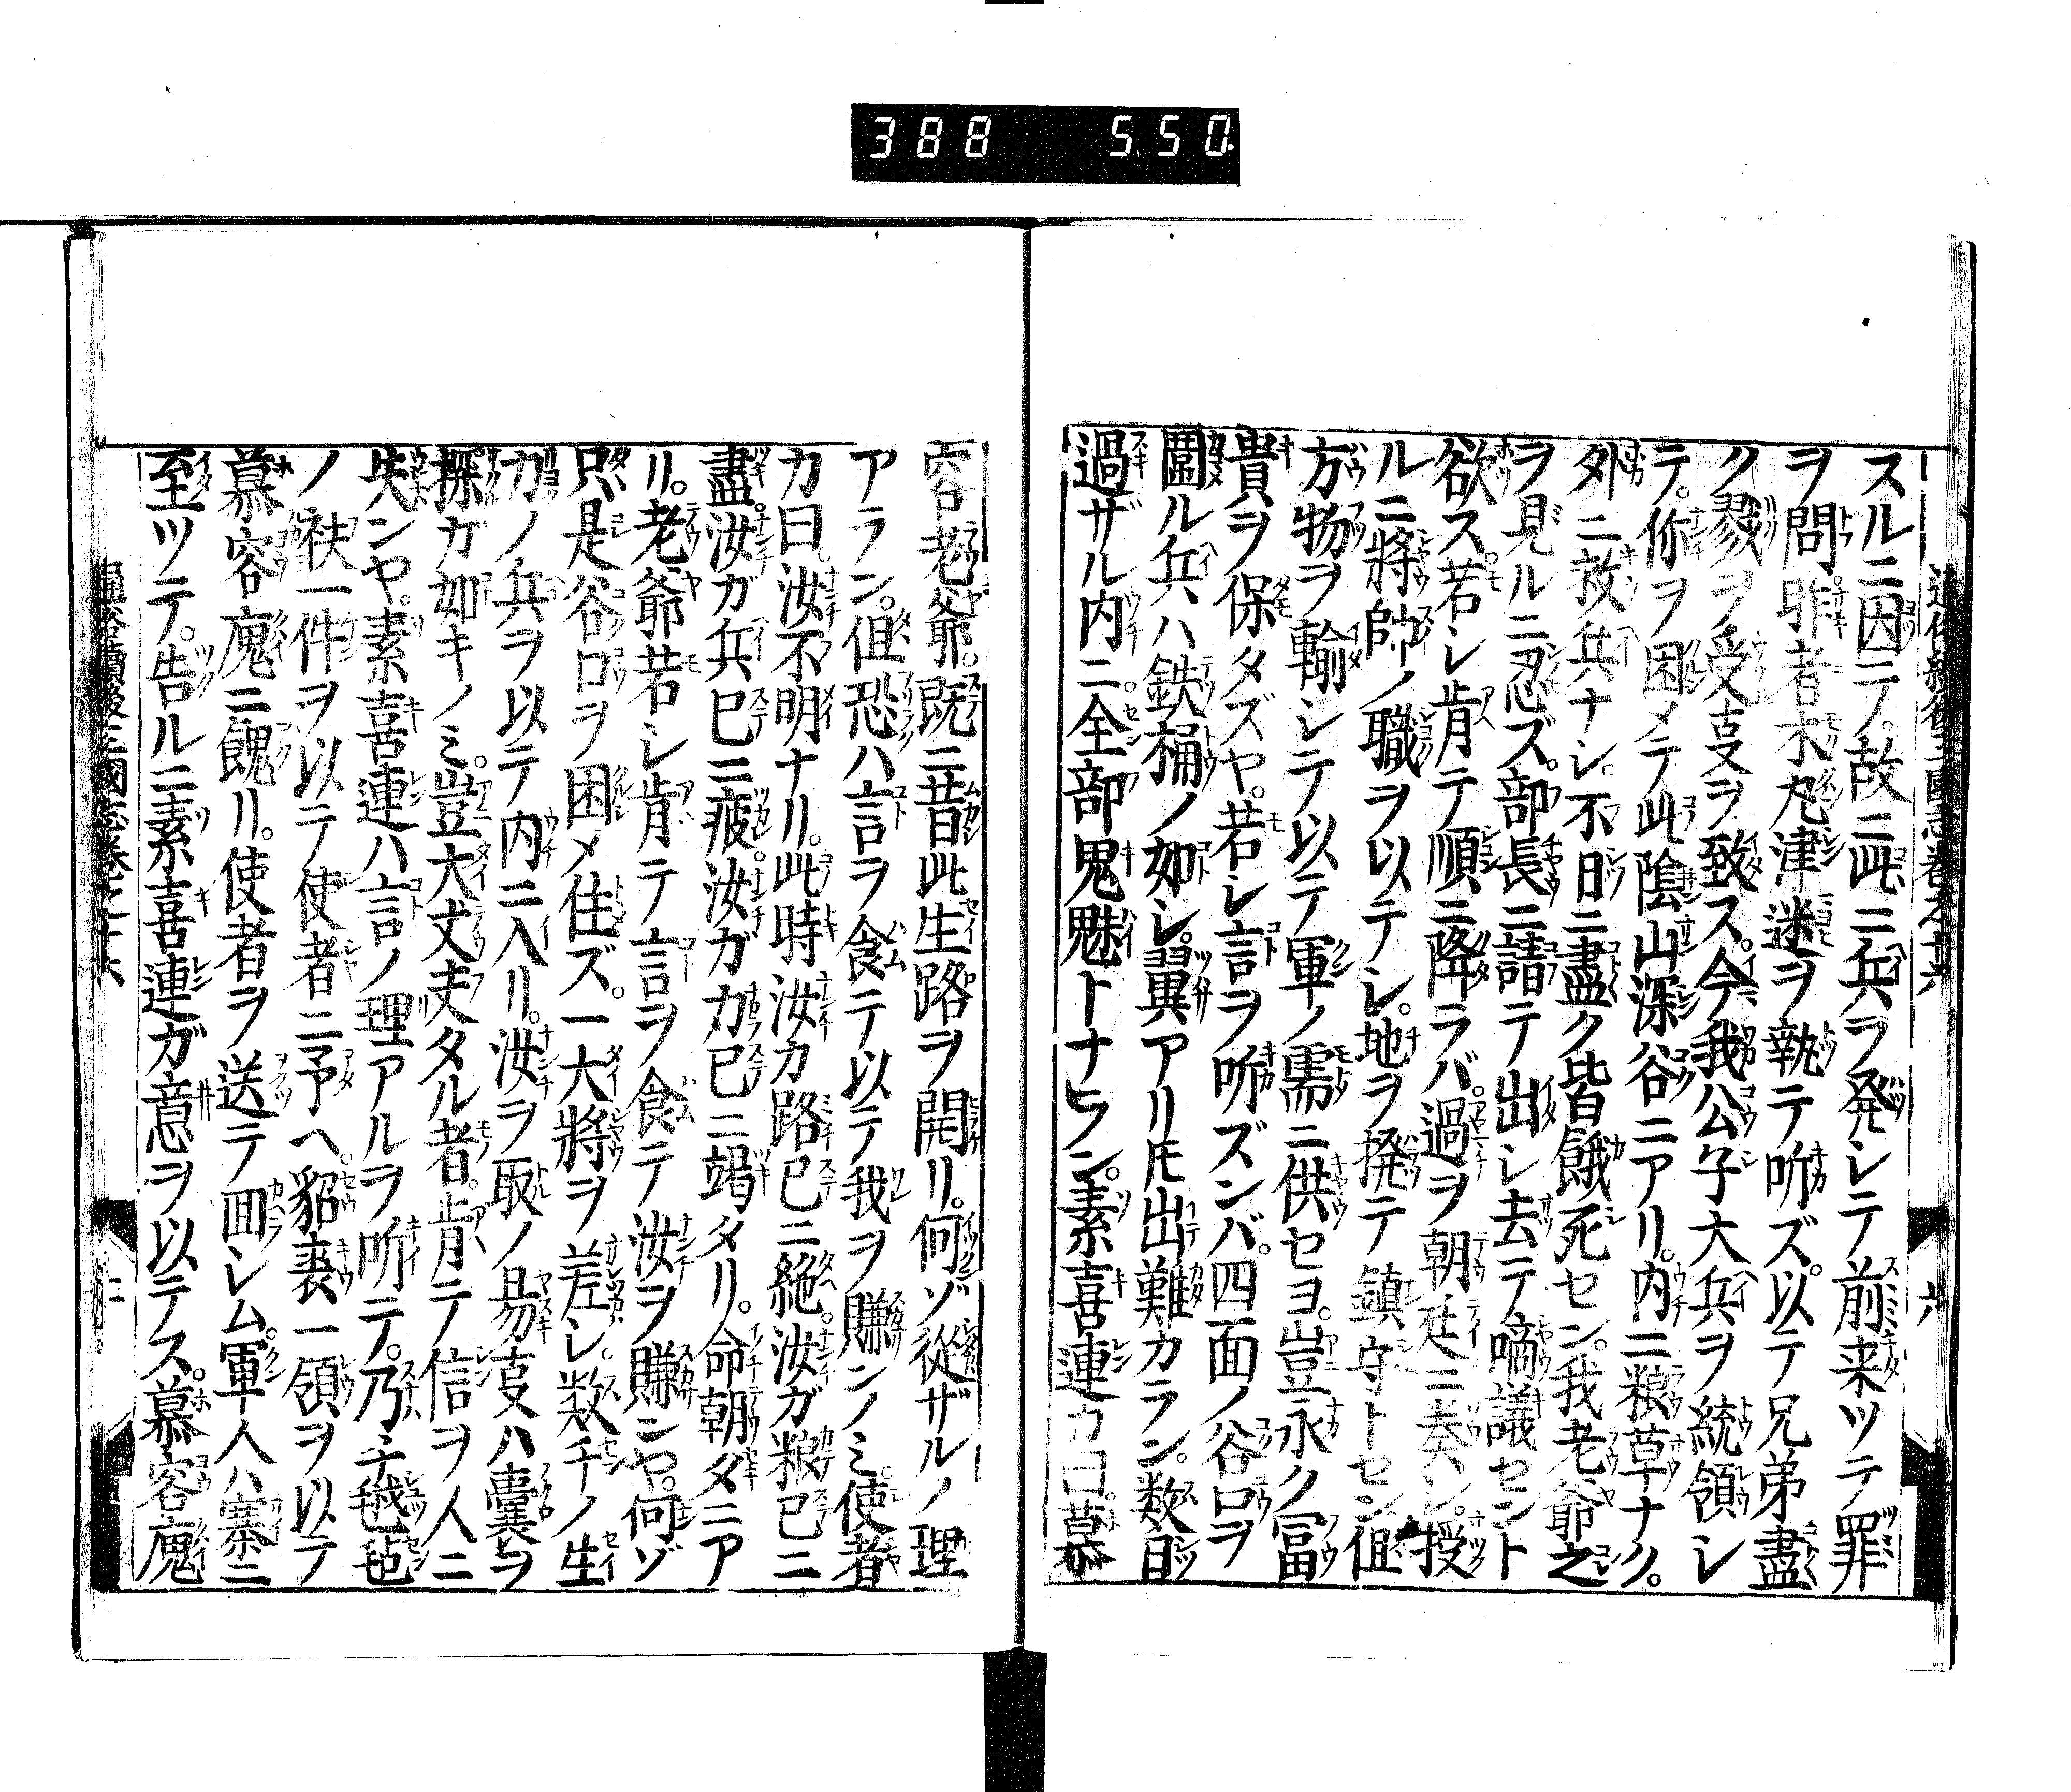 388 550.
通俗續後三國志卷之十六 六
スルニ因テ。故ニ此ニ兵ヲ発シテ前来ツテ罪
ヲ問。昨者木丸津迷ヲ執テ听ズ。以テ兄弟盡
ク戮ヲ受ヿヲ致ス。今我公子大兵ヲ統領シ
テ。你ヲ困メテ此陰山深谷ニアリ。内ニ粮草ナク。
外ニ救兵ナシ。不日ニ盡ク皆餓死セン。我老爺之
ヲ見ルニ忍ズ。部長ニ請テ出シ去テ啇議セント
欲ス。若シ肯テ順ニ降ラバ。過ヲ朝廷ニ奏シ。授
ルニ將帥ノ職ヲ以テシ。地ヲ撥テ鎮守トセン。但
方物ヲ輸シテ以テ軍ノ需ニ供セヨ。豈永ク冨
貴ヲ保タズヤ。若シ言ヲ听ズンバ。四面ノ谷口ヲ
圍ル兵ハ鉄桶ノ如シ。翼アリ𪜈出難カラン。数日
過ザル内ニ全部鬼魅トナラン。素喜連カ曰慕
容老爺。既ニ昔此生路ヲ開リ。何ゾ従ザルノ理
アラン。但恐ハ言ヲ食テ以テ我ヲ賺ンノミ。使者
カ曰。汝不明ナリ。此時汝カ路已ニ絶。汝ガ粮已ニ
盡。汝ガ兵已ニ疲。汝ガ力已ニ竭タリ。命朝夕ニア
リ。老爺若シ肯テ言ヲ食テ汝ヲ賺ンヤ。何ゾ
只是谷口ヲ困メ住ズ。一大將ヲ差シ。数千ノ生
力ノ兵ヲ以テ内ニ入リ。汝ヲ取ノ易ヿハ囊ヲ
探カ如キノミ。豈大丈夫タル者。肯テ信ヲ人ニ
失ンヤ。素喜連ハ言ノ理アルヲ听テ。乃チ毧毡
ノ袂一件ヲ以テ使者ニ予ヘ。貂裘一領ヲ以テ
慕容廆ニ餽リ。使者ヲ送テ囬シム。軍人ハ寨ニ
至ツテ。告ルニ素喜連ガ意ヲ以テス。慕容廆
通俗續後三國志卷之十六